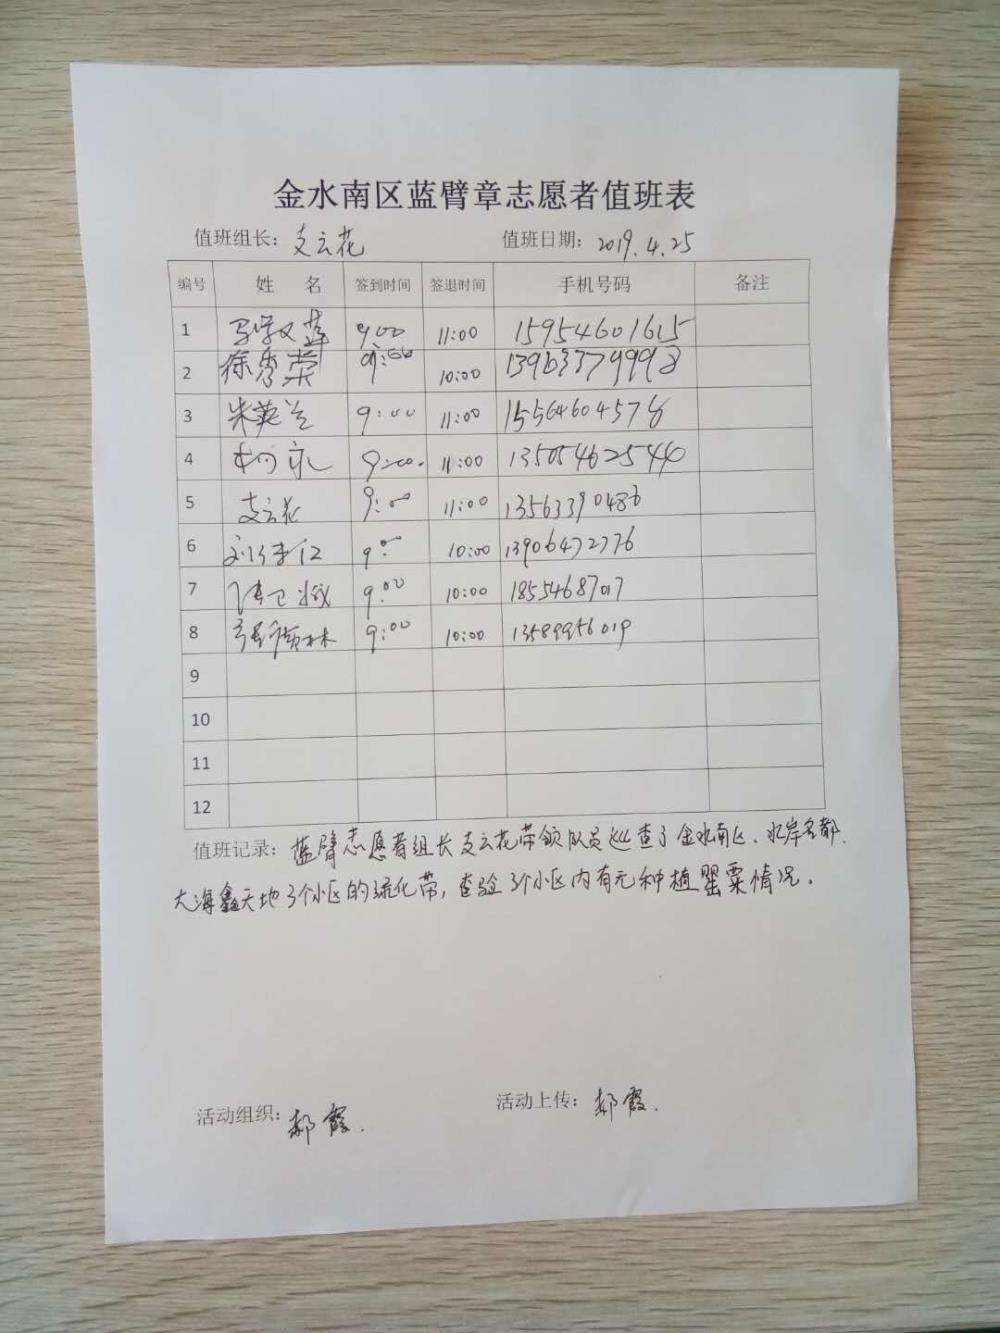 金水南区蓝臂章志愿者值班表
值班组长：支云花 值班日期：2019.4.25
编号 姓 名 签到时间 签退时间 手机号码 备注
1 9:00 11:00 15954601615
2 徐秀荣 9:00 10:00 13963379998
3 朱英兰 9:00 11:00 15564604578
4 9:00 11:00 13505462544
5 支云花 9:00 11:00 13563390486
6 9:00 10:00 13906472776
7 9:00 10:00 18554687017
8 9:00 10:00 13589956019
9
10
11
12
值班记录：蓝臂志愿者组长支云花带领队员巡查了金水南区、水岸名都、
大海鑫天地3个小区的绿化带，查验3个小区内有无种植罂粟情况.
活动组织：郝霞. 活动上传：郝霞.